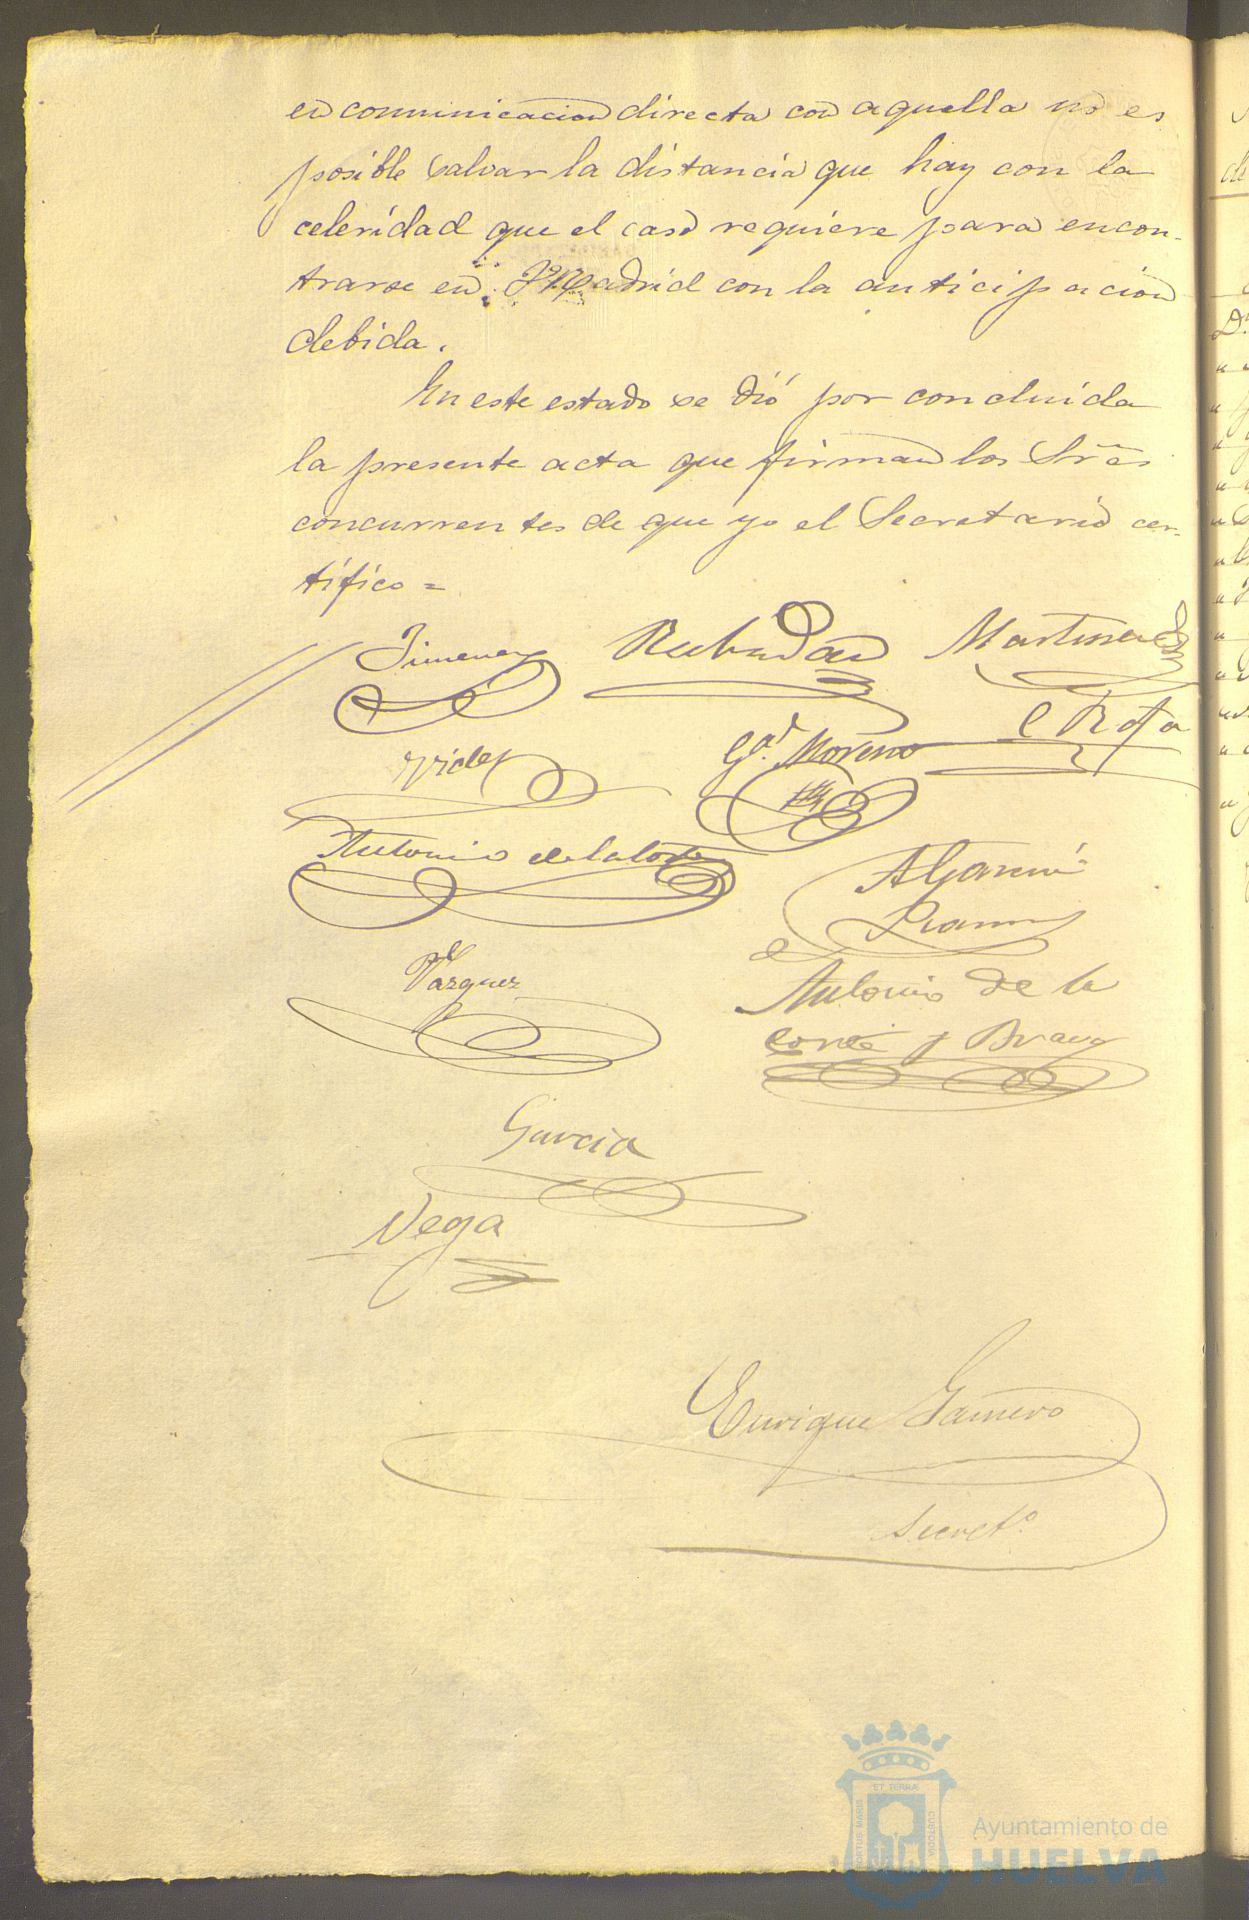 en comunicacion directa con aquella no es
posible salvar la distancia que hay con la
celeridad que el caso requiere para encon-
trarse en Madrid con la anticipacion
debida.
En este estado se dió por concluida
la presente acta que firman los Sres
concurrentes de que yo el Secretario cer-
tífico =
Jimenez Rabadan Martinez
C Rofa
Gª. Moreno
Antonio de la Corte
A Garcia
Ramos
Vazquez
Antonio de la
Corte y Bravo
Garcia
Vega
Enrique Gamero
Secretº
ET TERRÆ
PORTUS MARIS
CUSTODIA
Ayuntamiento de
HUELVA